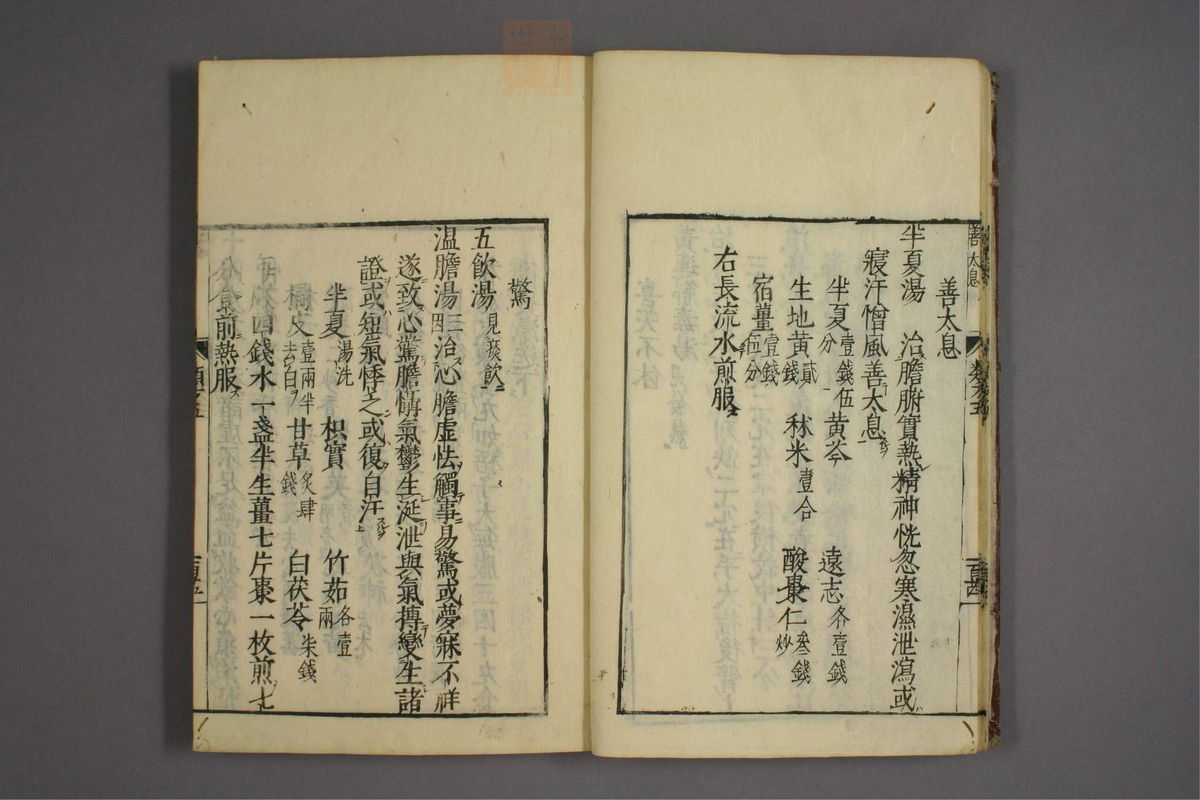 善太息
善太息
半夏湯　治膽腑實熱精神恍忽寒濕泄瀉或
寢汗憎風善太息
半夏壹錢伍分　黃芩　遠志各壹錢
生地黃貳錢　秫米壹合　酸棗仁叄錢炒
宿薑壹錢伍分
右長流水煎服
驚
五飲湯見痰飲
温膽湯三四　治心膽虛怯觸事易驚或夢寐不祥
遂致心驚膽慴氣鬱生涎泄與氣摶變生諸
證或短氣悸乏或復自汗
半夏湯洗　枳實　竹茹各壹兩
橘皮壹兩半去白　甘草炙肆錢　白茯苓柒錢
每服四錢水一盞半生薑七片棗一枚煎七
分食前熱服